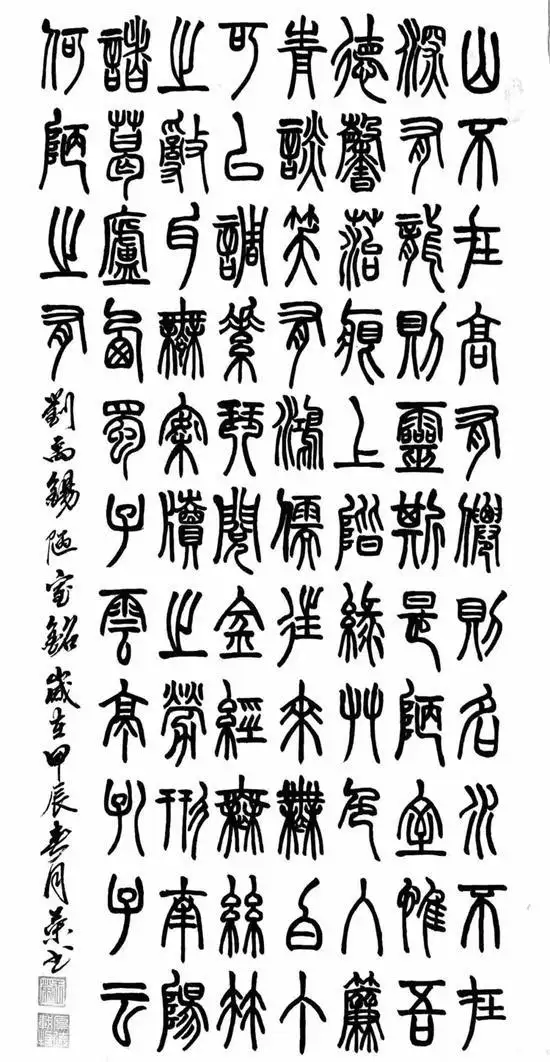 山不在高有僊則名水不在
深有龍則靈斯是陋室惟吾
德馨菭痕上階綠艸色入簾
青談笑有鴻儒往來無白丁
可以調素琴閱金經無絲竹
之亂耳無案牘之勞形南陽
諸葛廬西蜀子雲亭孔子云
何陋之有
劉禹錫陋室銘歲在甲辰春月榮书